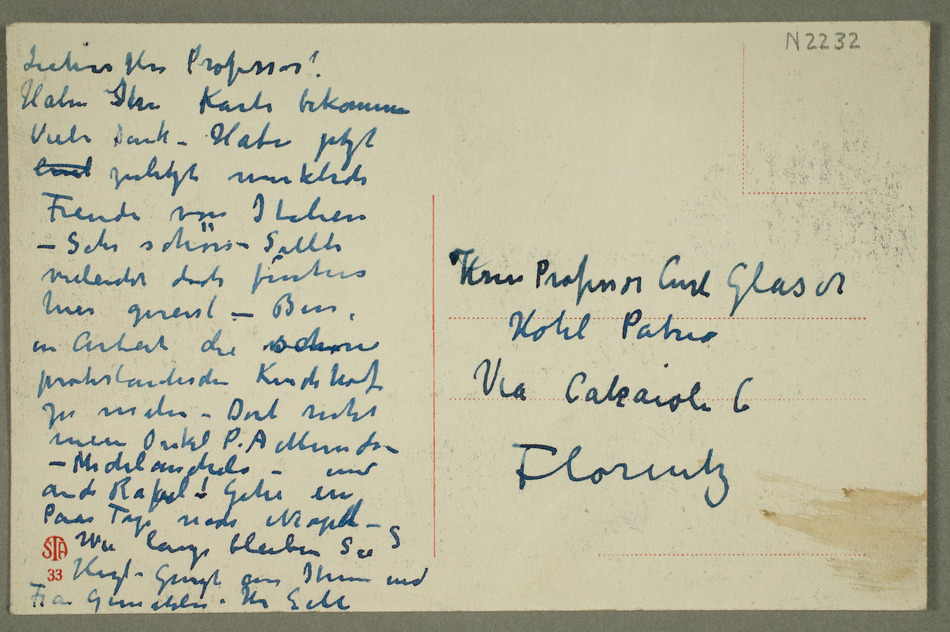 N2232
Lieber Herr Professor!
Habe Ihre Karte bekommen
Viele Dank – Habe jetzt
zuletzt wirklich
Freude von Italien
– Sehr schön – Sollte
vieleicht doch früher
hier gereist – Bin
in Arbeit die schöne
protestantische Kirchhof
zu malen – Dort ruht
mein Onkel P. A. Munch –
– Michelangelo – und
auch Rafael! Gehe ein
Paar Tage nach Neapel –
Wie lange bleiben Sie
Herzl. Grüsse an Ihnen und
Frau Gemahlin – Ihr
STA
33
Herrn Professor Curt Glaser
Hotel Patria
Via Calzaioli 6
Florentz